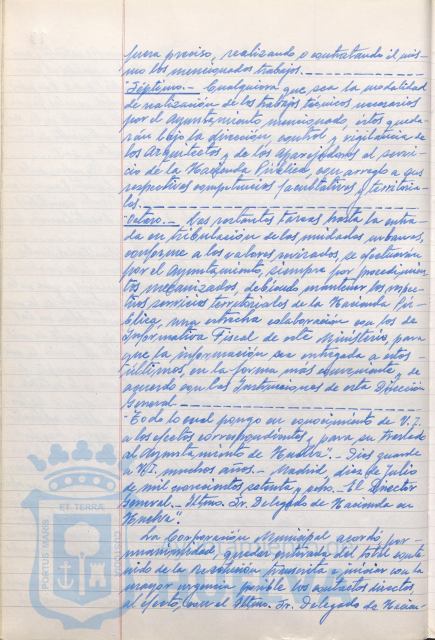 fuera preciso, realizando o contratando él mis-
mo los mencionados trabajos.
"Séptimo.- Cualquiera que sea la modalidad
de realización de los trabajos técnicos necesarios
por el Ayuntamiento mencionado, éstos queda-
rán bajo la dirección, control y vigilancia de
los Arquitectos y de los Aparejadores al servi-
cio de la Hacienda Pública, con arreglo a sus
respectivas competencias facultativas y territoria-
les.
"Octavo.- Las restantes tareas hasta la entra-
da en tributación de las unidades urbanas,
conforme a los valores revisados, se efectuarán
por el Ayuntamiento, siempre por procedimien-
tos mecanizados, debiendo mantener los respec-
tivos servicios territoriales de la Hacienda Pú-
blica, una estrecha colaboración con los de
Informática Fiscal de este Ministerio, para
que la información sea entregada a estos
últimos, en la forma más conveniente, de
acuerdo con las Instrucciones de esta Dirección
General
"Todo lo cual pongo en conocimiento de V.I.
a los efectos correspondientes y para su traslado
al Ayuntamiento de Huelva".- Dios guarde
a V.I. muchos años.- Madrid, diez de Julio
de mil novecientos setenta y ocho.- El Director
General.- Iltmo. Sr. Delegado de Hacienda en
Huelva".
La Corporación Municipal acordó por
unanimidad, quedar enterada del total conte-
nido de la Resolución transcrita e iniciar con la
mayor urgencia posible los contactos directos,
al efecto, con el Iltmo. Sr. Delegado de Hacien-
PORTUS MARIS ET TERRAE CUSTODIA